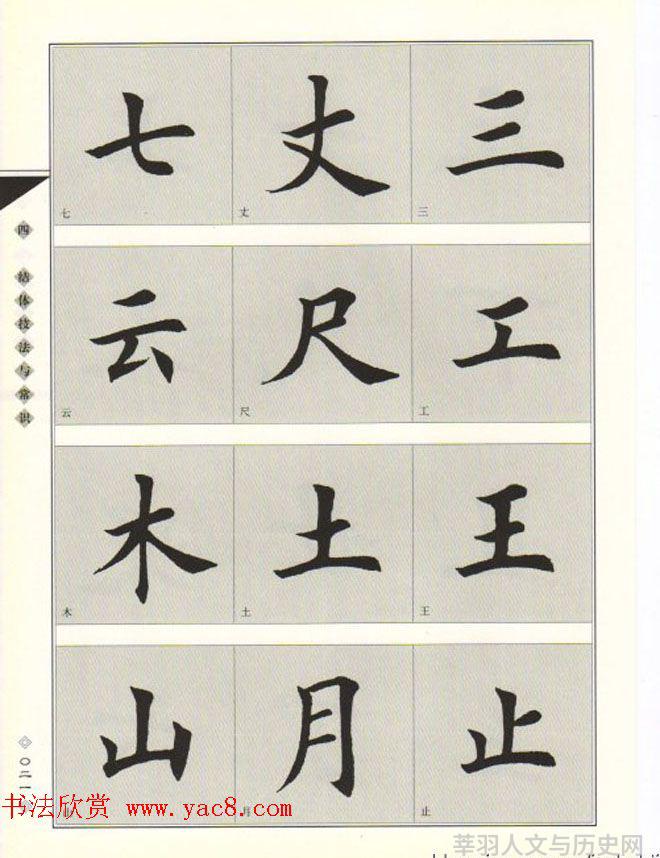 七 丈 三
七 丈 三
云 尺 工
云 尺 工
木 土 王
木 土 王
山 月 止
山 月 止
四 结体技法与常识
〇二一
书法欣赏 www.yac8.com
莘羽人文与历史网